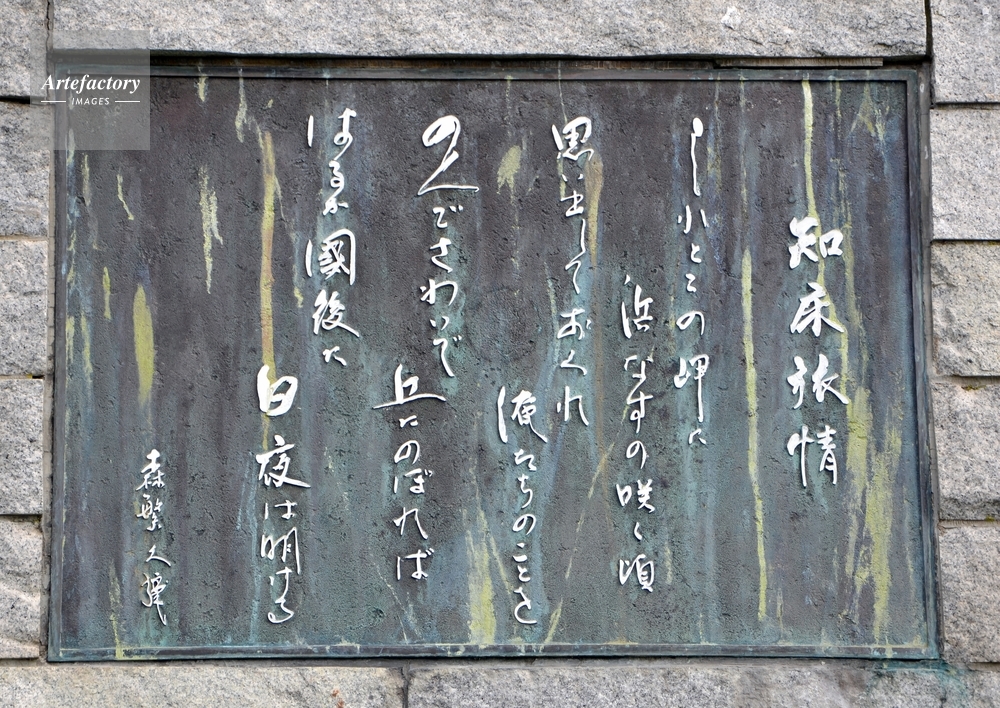 知床旅情
しれとこの岬に
浜なすの咲く頃
思い出しておくれ
俺たちのことを
のんでさわいで
丘にのぼれば
はるか國後に
白夜は明ける
森繁久彌
Artefactory
IMAGES